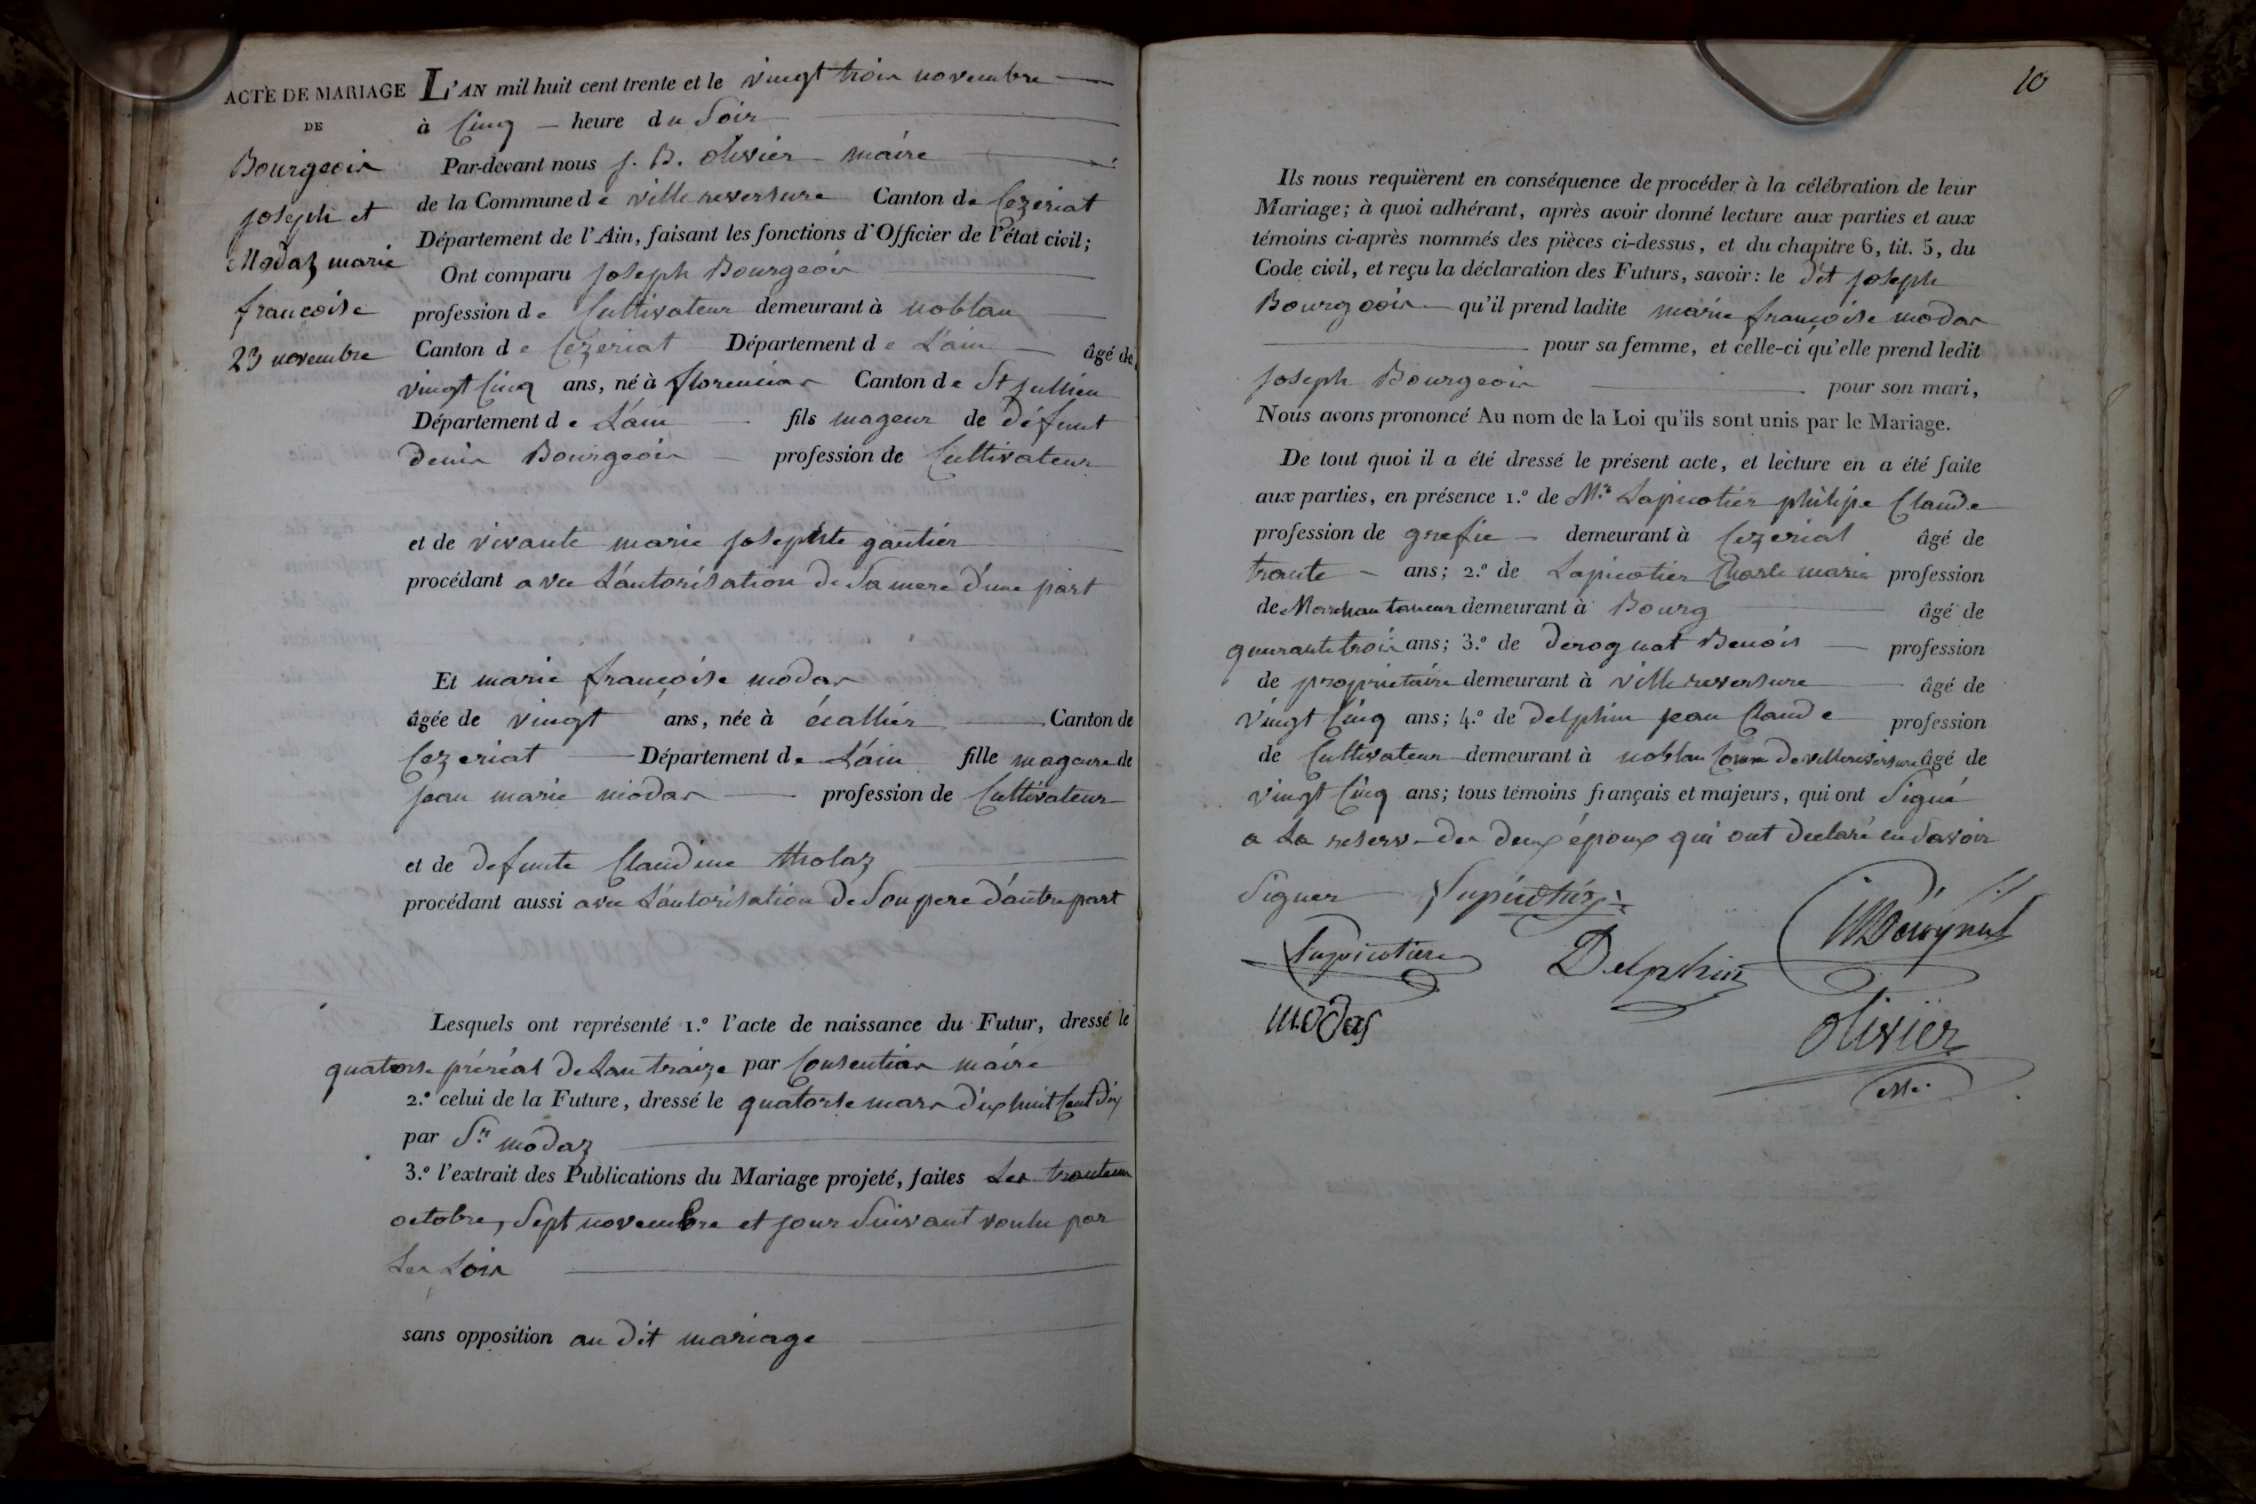 ACTE DE MARIAGE
DE
Bourgeois
joseph et
Modaz marie
françoise
23 novembre
L'AN mil huit cent trente et le vingt trois novembre
à Cinq heure du Soir
Par-devant nous J. B. olivier maire
de la Commune de villereversure Canton de Cezeriat
Département de l'Ain, faisant les fonctions d'Officier de l'état civil;
Ont comparu joseph Bourgeois
profession de Cultivateur demeurant à noblan
Canton de Cezeriat Département de L'ain âgé de
vingt Cinq ans, né à florencias Canton de St jullien
Département de L'ain fils mageur de défunt
denis Bourgeois profession de Cultivateur
et de vivante marie josephte gautier
procédant avec L'autorisation de Sa mere d'une part
Et marie françoise modas
âgée de vingt ans, née à Canton de
Cezeriat Département de L'ain fille mageure de
jean marie modas profession de Cultivateur
et de defunte Claudine tholaz
procédant aussi avec L'autorisation de Son pere d'autre part
Lesquels ont représenté 1.° l'acte de naissance du Futur, dressé le
quatorse préréal de L'an traize par Consentias maire
2.° celui de la Future, dressé le quatorse mars dix huit Cent dix
par Sr modaz
3.° l'extrait des Publications du Mariage projeté, faites Les tranteun
octobre, Sept novembre et jour Suivant voulu par
Les Lois
sans opposition au dit mariage
10
Ils nous requièrent en conséquence de procéder à la célébration de leur
Mariage; à quoi adhérant, après avoir donné lecture aux parties et aux
témoins ci-après nommés des pièces ci-dessus, et du chapitre 6, tit. 5, du
Code civil, et reçu la déclaration des Futurs, savoir: le dit joseph
Bourgeois qu'il prend ladite marie françoise modas
pour sa femme, et celle-ci qu'elle prend ledit
joseph Bourgeois pour son mari,
Nous avons prononcé Au nom de la Loi qu'ils sont unis par le Mariage.
De tout quoi il a été dressé le présent acte, et lecture en a été faite
aux parties, en présence 1.° de Mr Lapicotier philipe Claude
profession de grefie demeurant à Cezeriat âgé de
trante ans; 2.° de Lapicotier Charle marie profession
de Marchan taneur demeurant à Bourg âgé de
quarante trois ans; 3.° de derognat Benois profession
de propriétaire demeurant à villereversure âgé de
vingt Cinq ans; 4.° de delphin jean Claude profession
de Cultivateur demeurant à noblan Comm de villereversure âgé de
vingt Cinq ans; tous témoins français et majeurs, qui ont Signé
a La reserve des deux époux qui ont declaré en Savoir
Signer Lapicotier
Lapicotiere Delphin Derognat
modas olivier